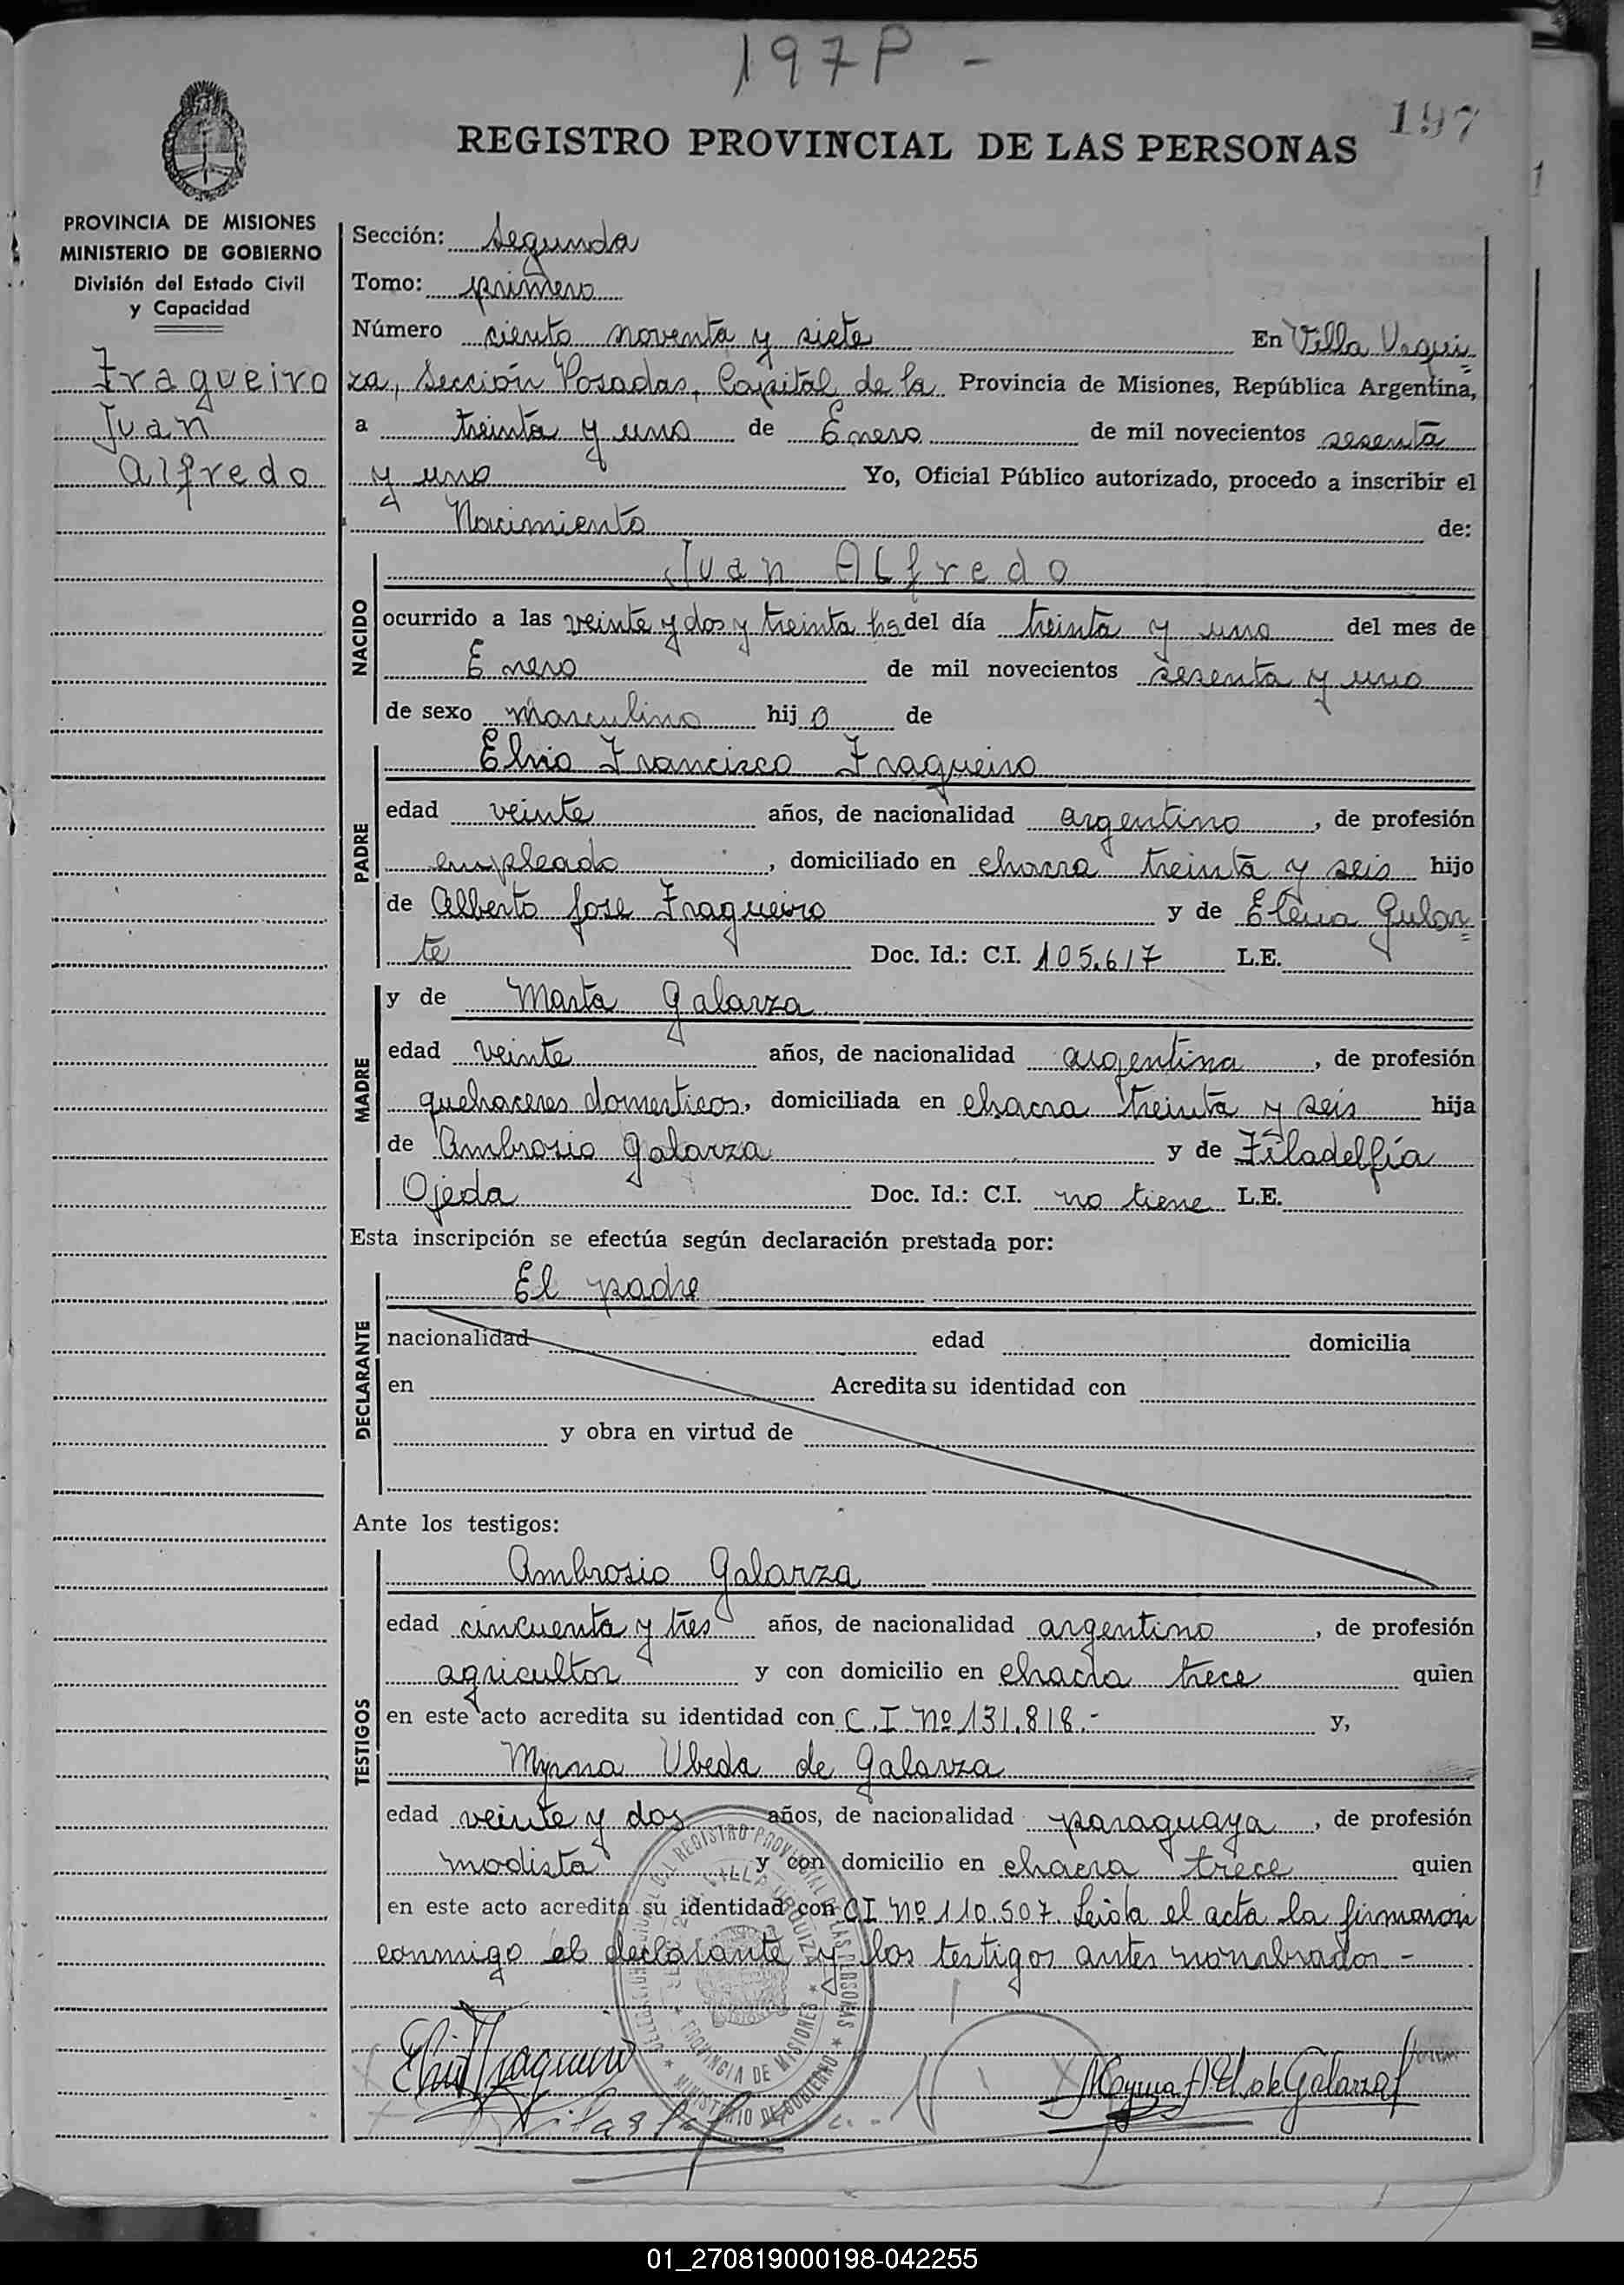 197P -
197
REGISTRO PROVINCIAL DE LAS PERSONAS
PROVINCIA DE MISIONES
MINISTERIO DE GOBIERNO
División del Estado Civil
y Capacidad
Fragueiro
Juan
Alfredo
Sección: Segunda
Tomo: primero
Número ciento noventa y siete En Villa Urqui=
za, Sección Posadas, Capital de la Provincia de Misiones, República Argentina,
a treinta y uno de Enero de mil novecientos sesenta
y uno Yo, Oficial Público autorizado, procedo a inscribir el
Nacimiento de:
NACIDO
Juan Alfredo
ocurrido a las veinte y dos y treinta hs del día treinta y uno del mes de
Enero de mil novecientos sesenta y uno
de sexo masculino hijo de
PADRE
Elvio Francisco Fragueiro
edad veinte años, de nacionalidad argentino, de profesión
empleado, domiciliado en chacra treinta y seis hijo
de Alberto Jose Fragueiro y de Elena Gular=
te Doc. Id.: C.I. 105.617 L.E.
MADRE
y de Marta Galarza
edad veinte años, de nacionalidad argentina, de profesión
quehaceres domesticos, domiciliada en chacra treinta y seis hija
de Ambrosio Galarza y de Filadelfia
Ojeda Doc. Id.: C.I. no tiene L.E.
Esta inscripción se efectúa según declaración prestada por:
DECLARANTE
El padre
nacionalidad edad domicilia
en Acredita su identidad con
y obra en virtud de
Ante los testigos:
TESTIGOS
Ambrosio Galarza
edad cincuenta y tres años, de nacionalidad argentino, de profesión
agricultor y con domicilio en chacra trece quien
en este acto acredita su identidad con C.I. Nº 131.818.- y,
Myrna Ubeda de Galarza
edad veinte y dos años, de nacionalidad paraguaya, de profesión
modista y con domicilio en chacra trece quien
en este acto acredita su identidad con CI Nº 110.507. Leída el acta la firmaron
conmigo el declarante y los testigos antes nombrados -
REGISTRO PROVINCIAL DE LAS PERSONAS
VILLA URQUIZA
PROVINCIA DE MISIONES
MINISTERIO DE GOBIERNO
Elvio Fragueiro
Myrna U. de Galarza
01_270819000198-042255